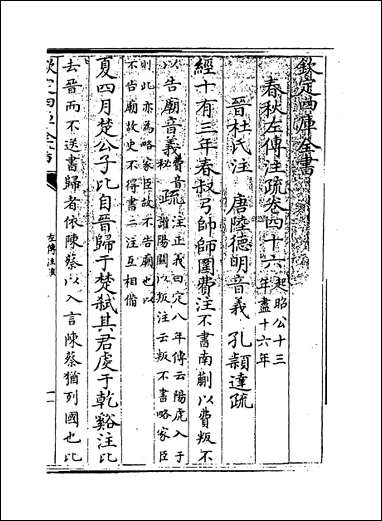 欽定四庫全書
春秋左傳注疏卷四十六
起昭公十三
年盡十六年
晉杜氏注　唐陸德明音義　孔穎達疏
經十有三年春叔弓帥師圍費注不書南蒯以費叛不
以告廟音義費音秘疏
注正義曰定八年傳云陽虎入于
讙陽關以叛注云叛不書略家臣
則此亦為略家臣故不告廟也以
不告廟故史不得書二注互相備
夏四月楚公子比自晉歸于楚弑其君虔于乾谿注比
去晉而不送書歸者依陳蔡以入言陳蔡猶列國也比
欽定四庫全書
左傳注疏
一